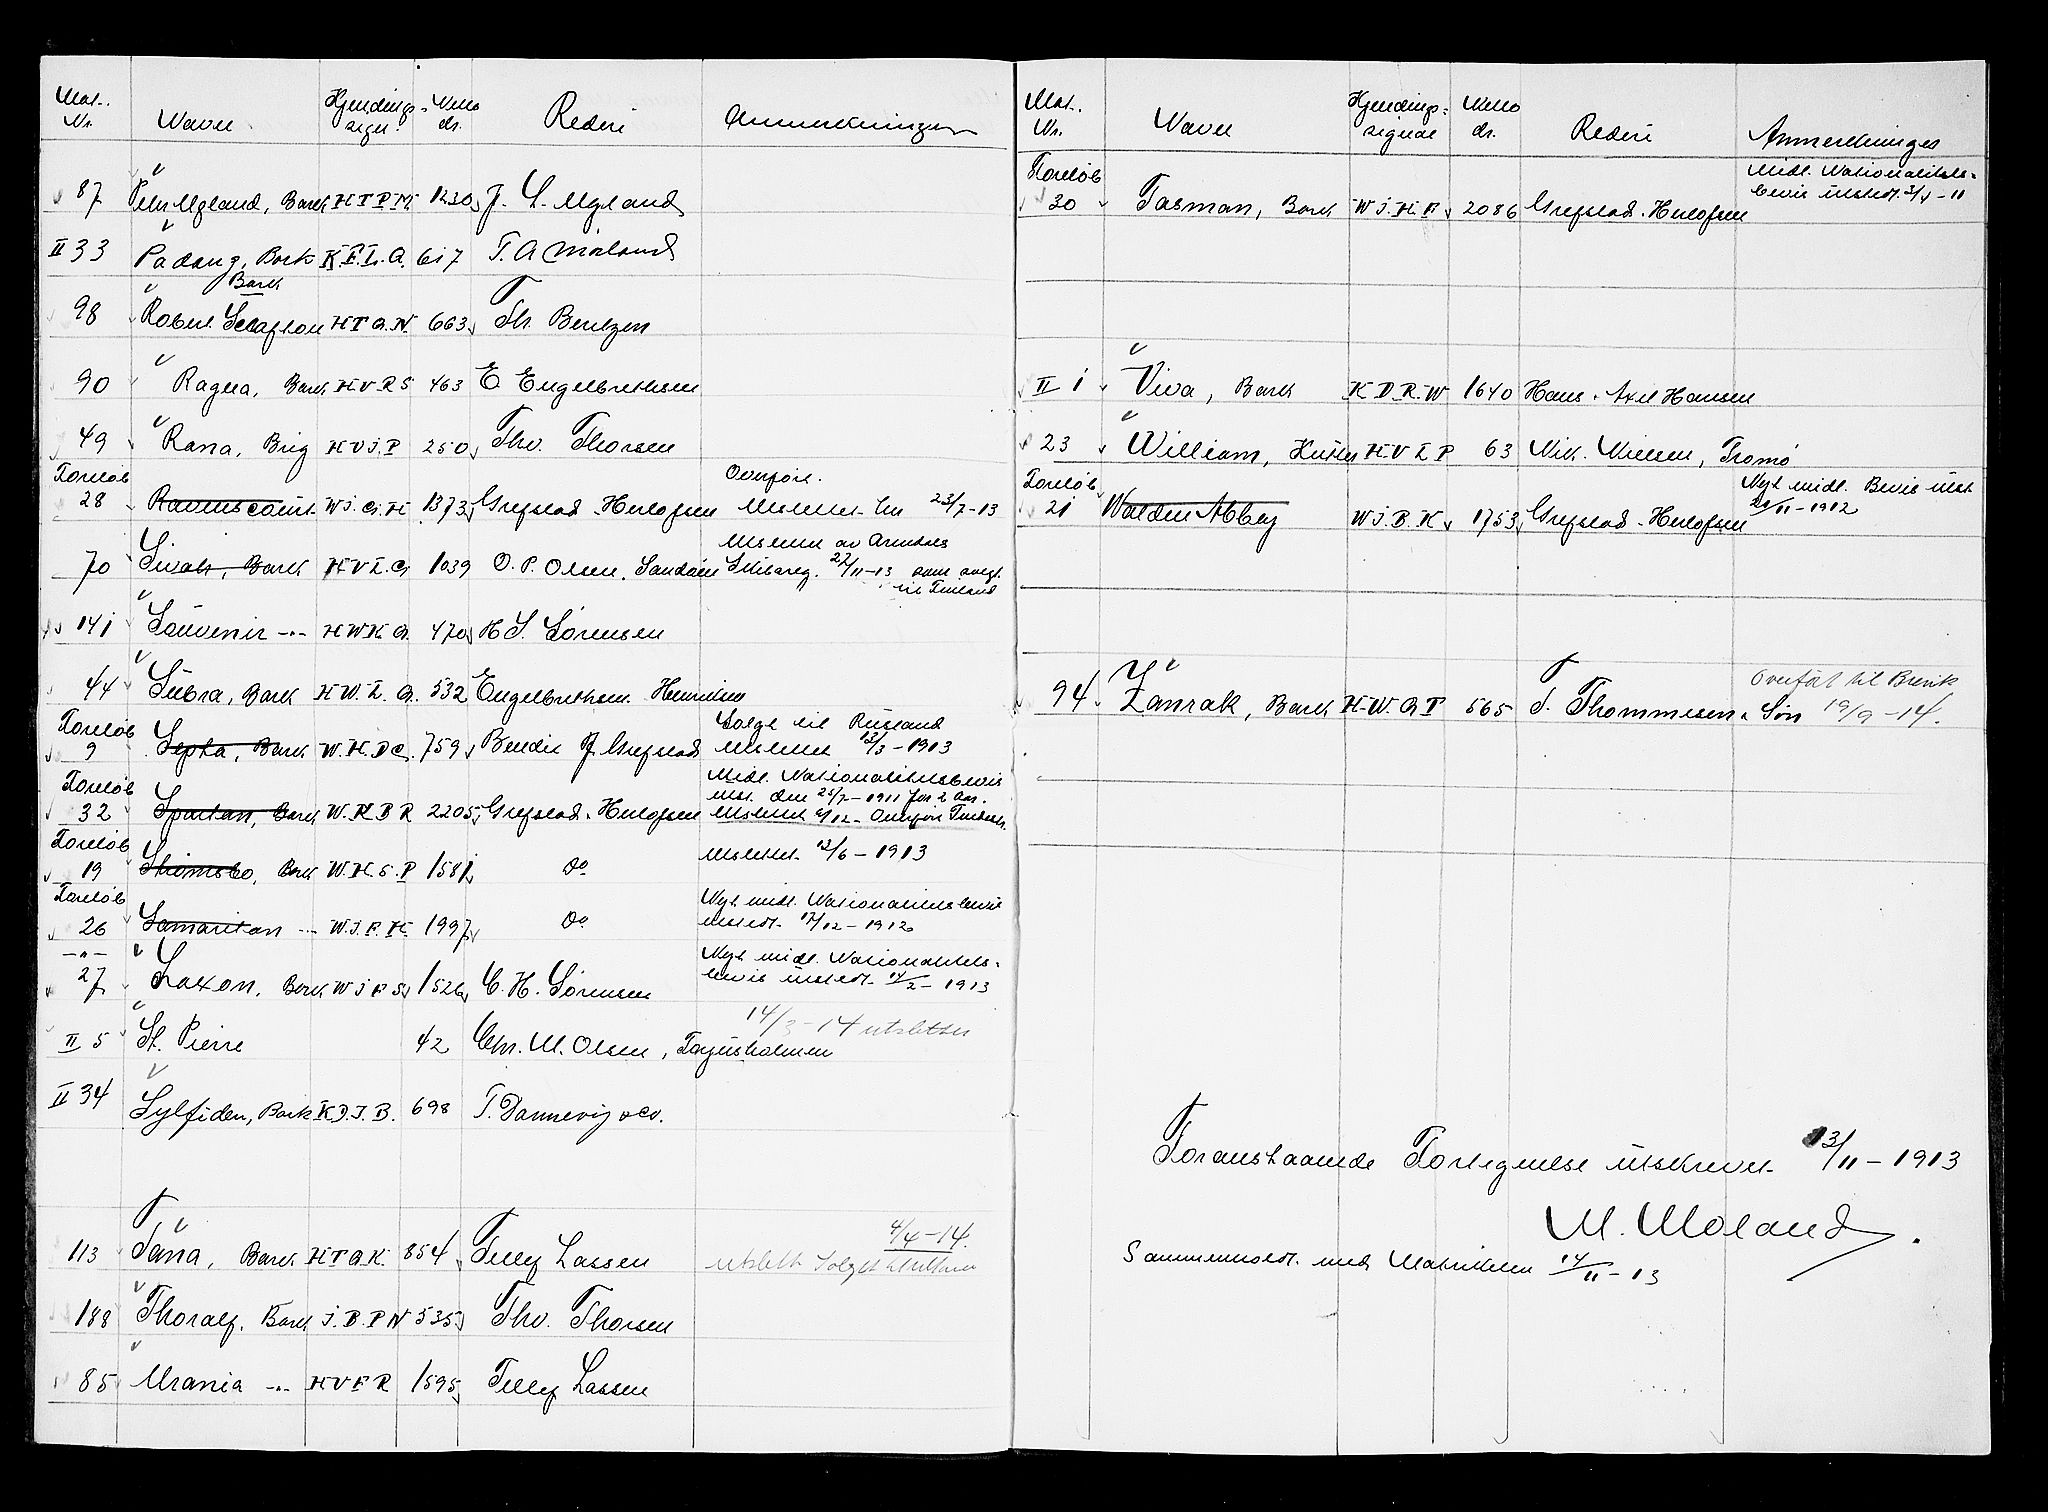 Mat. Nr. Navn Kjendings- signl. Netto dr. Rederi Anmerkninger
87 Peter Ugland, Bark H T P M 1230 J. L. Ugland
II 33 Padang, Bark K. F. L. Q. 617 T. A Moland
98 Robert Scrafton Bark H T Q. N. 663 Th. Bentzen
90 Ragna, Bark H V R S 463 E Engelbrethsen
49 Rana, Brig H V J. P 250 Thv. Thorsen
Foreløb 28 Ravenscourt W. J. G. H 1373 Grefstad - Herlofsen Overført.
Utslettet 23/7-13
70 Sivah, Bark H V L. G 1039 O. P. Olsen, Sandøen Utslettet av Arendals
Skibsreg. 22/11-13 som solgt
til Finland
141 Souvenir -"- H W K. Q. 470 H S. Sørensen
44 Subra, Bark H W. L. Q. 532 Engelbrethsen Henriksen
Foreløb 9 Septa, Bark W. H. D C. 759 Bendix J. Grefstad Solgt til Rusland
Utslettet 13/3-1913
Foreløb 32 Spartan, Bark W. K B R 2205 Grefstad - Herlofsen Midl. Nationalitetsbevis
utst. den 25/7-1911 for 2 Aar.
Utslettet
Foreløb 19 Skomsbo, Bark W. H. S. P 1581 Do Utslettet 12/6-1913
Foreløb 26 Samaritan -"- W. J. F. H. 1997 Do Nyt midl. Nationalitetsbevis
utstedt 17/12-1912
-"- 27 Saxon, Bark W J F S 1526 C. H. Sørensen Nyt midl. Nationalitets-
bevis utstedt 14/2-1913
II 5 St. Pierre 42 Chr. M. Olsen, Torjusholmen 14/3-14 utslettes
II 34 Sylfiden, Bark K D. J. B. 698 T. Dannevig & Co.
113 Tana, Bark H T Q. K. 854 Telly Lassen 4/4-14.
utslett Solgt
188 Thoralf, Bark J. B. P N 535 Thv. Thorsen
85 Urania -"- H V F R 1595 Telly Lassen
Mat. Nr. Navn Kjendings- signal Netto dr. Rederi Anmerkninger
Foreløb 30 Tasman, Bark W J. H. F 2086 Grefstad - Herlofsen Midl. Nationalitets-
bevis utstedt
II 1 Viva, Bark K D. R. W 1640 Hans - Axel Hansen
23 William, Kutter H V L P 63 Nik. Nielsen, Tromø
Foreløb 21 Walden Abbey W J. B. K 1753 Grefstad - Herlofsen Nyt midl. Bevis utst
20/11-1912
94 Zanrak, Bark H. W. Q T 565 T. Thommesen & Søn Overført til Brevik
19/9-14.
Foranstaaende Fortegnelse utskrevet 13/11-1913
M. Moland.
Sammenholdt med Matrikelen 14/11-13